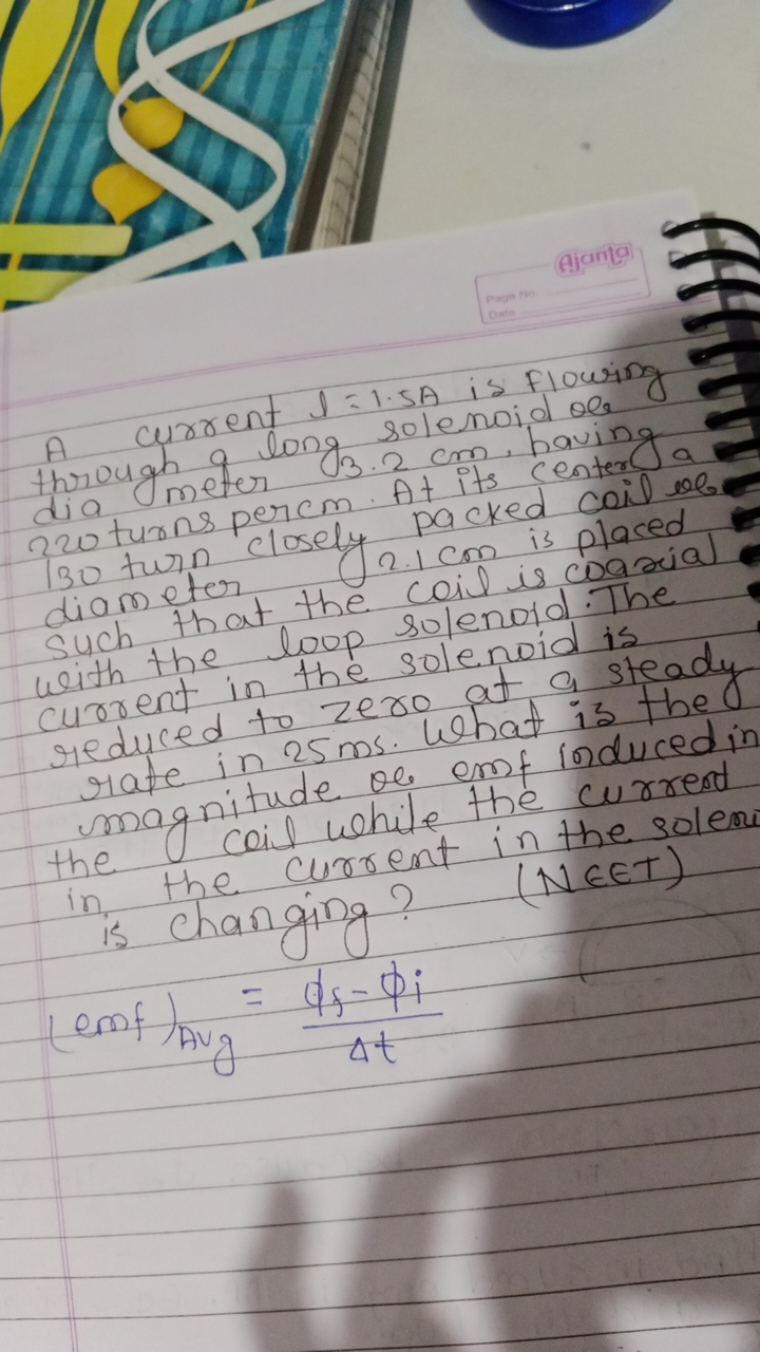 Ajanta
Page No.
Date
A current I = 1.5A is flowing
through a long solenoid of
diameter 3.2 cm. having
220 turns per cm. At its center a
130 turn closely packed coil of
diameter 2.1 cm is placed
such that the coil is coaxial
with the loop solenoid. The
current in the solenoid is
reduced to zero at a steady
rate in 25 ms. What is the
magnitude of emf induced in
the coil while the current
in the current in the soleni
is changing? (NEET)
(emf)Avg = ϕf - ϕi
Δt